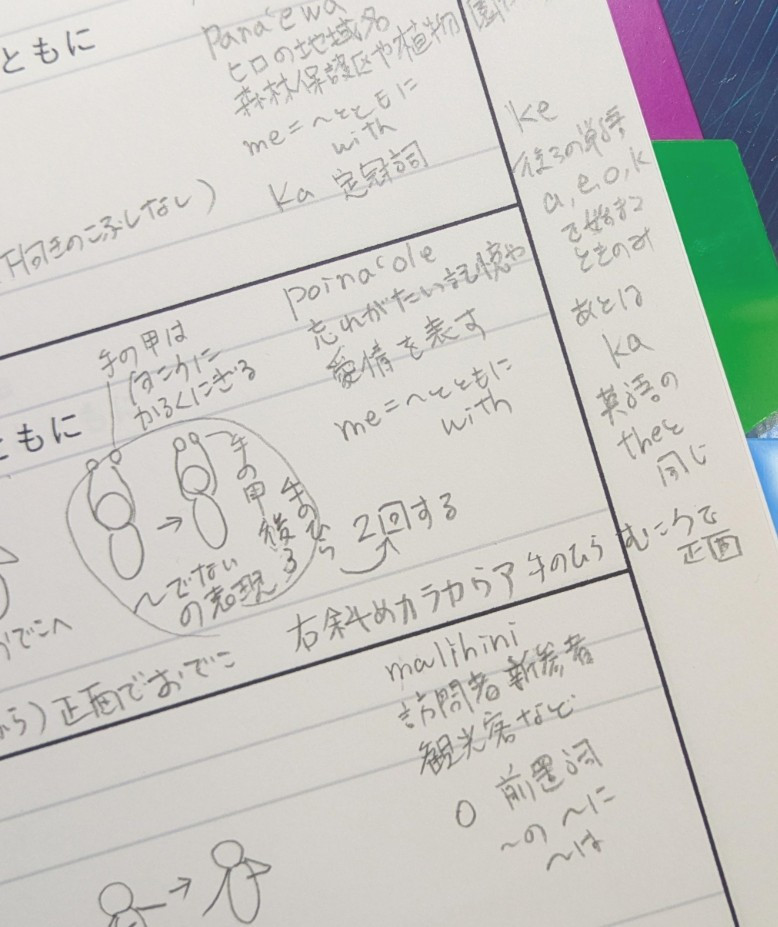 ともに
Pana'ewa
ヒロの地域名
森林保護区や植物園や
me=〜とともに
with
ka 定冠詞
下向きのこぶしなし)
ke
後ろの単語
a,e,o,k
で始まる
ときのみ
あとは
ka
英語の
theと
同じ
poina'ole
忘れがたい記憶や
愛情を表す
me=〜とともに
with
手の甲は
向こうに
かるくにぎる
ともに
→
手の甲
後ろ
手のひら
〜でない
の表現
2回する
おでこへ
右斜めカラカラア 手のひら むこうで
正面
ら)正面でおでこ
malihini
訪問者 新参者
観光客など
o 前置詞
〜の 〜に
〜は
→